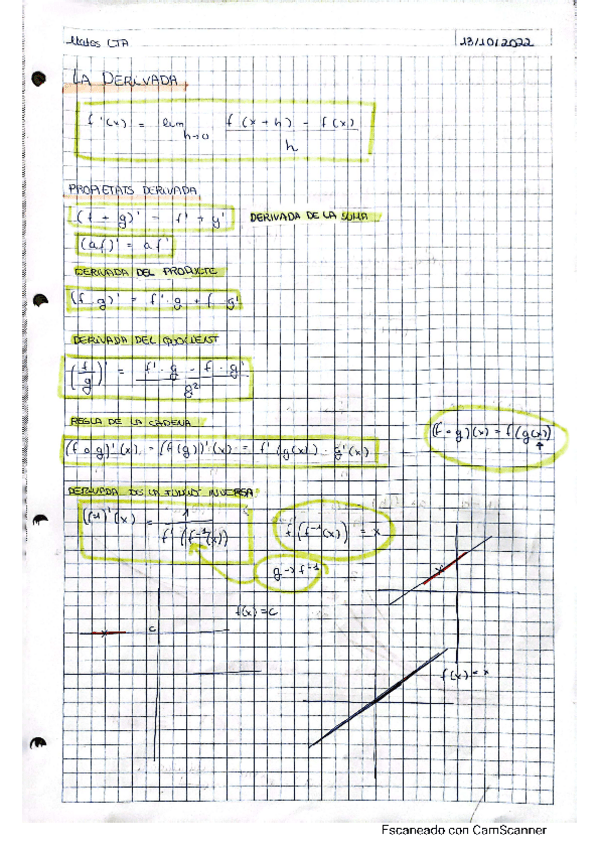 Mates LTA 13/10/2022
LA DERIVADA
f'(x) = lim h→0 f(x+h) - f(x) / h
PROPIETATS DERIVADA
(f + g)' = f' + g' DERIVADA DE LA SUMA
(af)' = af'
DERIVADA DEL PRODUCTE
(f · g)' = f' · g + f · g'
DERIVADA DEL QUOCIENT
(f/g)' = f' · g - f · g' / g²
REGLA DE LA CADENA
(f ∘ g)(x) = f(g(x))
(f ∘ g)'(x) = (f(g))'(x) = f'(g(x)) · g'(x)
DERIVADA DE LA FUNCIÓ INVERSA
'(x) = 1 / f'(f⁻¹(x)) f(f⁻¹(x)) = x
g → f⁻¹
f(x) = c
c
f(x) = x
Escaneado con CamScanner